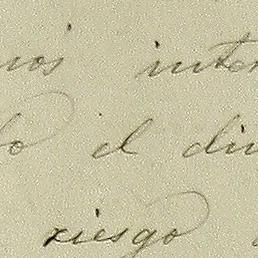 nos inter
do el din
riesgo